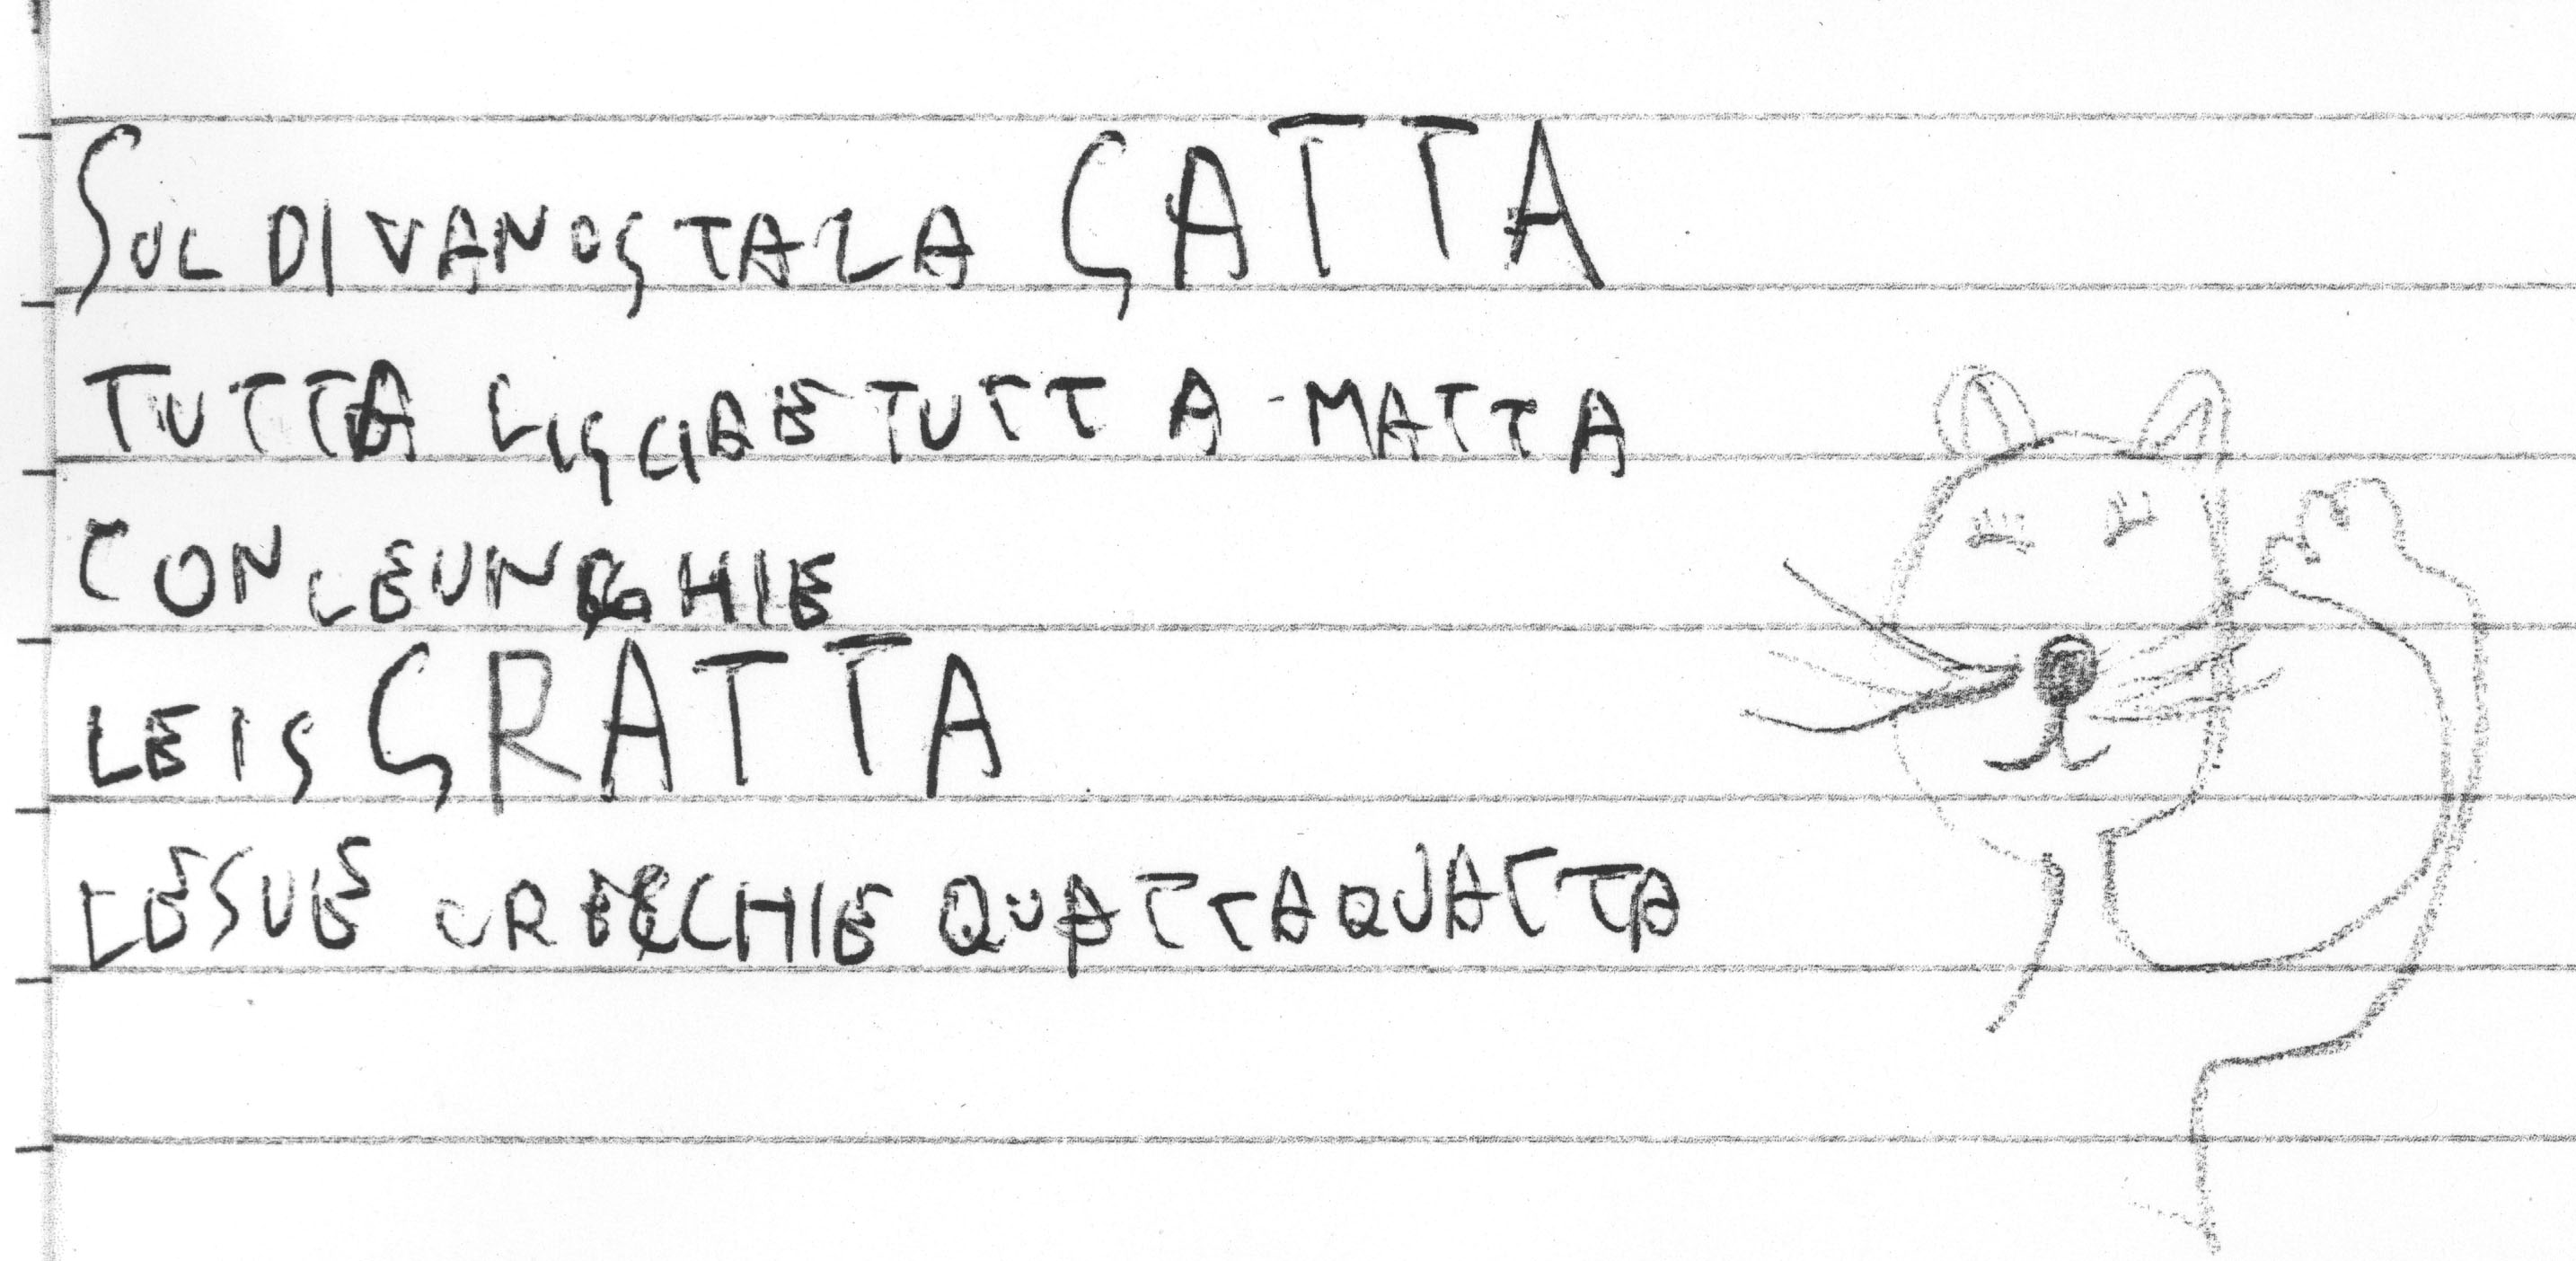 SUL DIVANO STA LA GATTA
TUTTA LISCIA E TUTTA MATTA
CON LE UNGHIE
LEI S GRATTA
LE SUE ORECCHIE QUATTA QUATTA